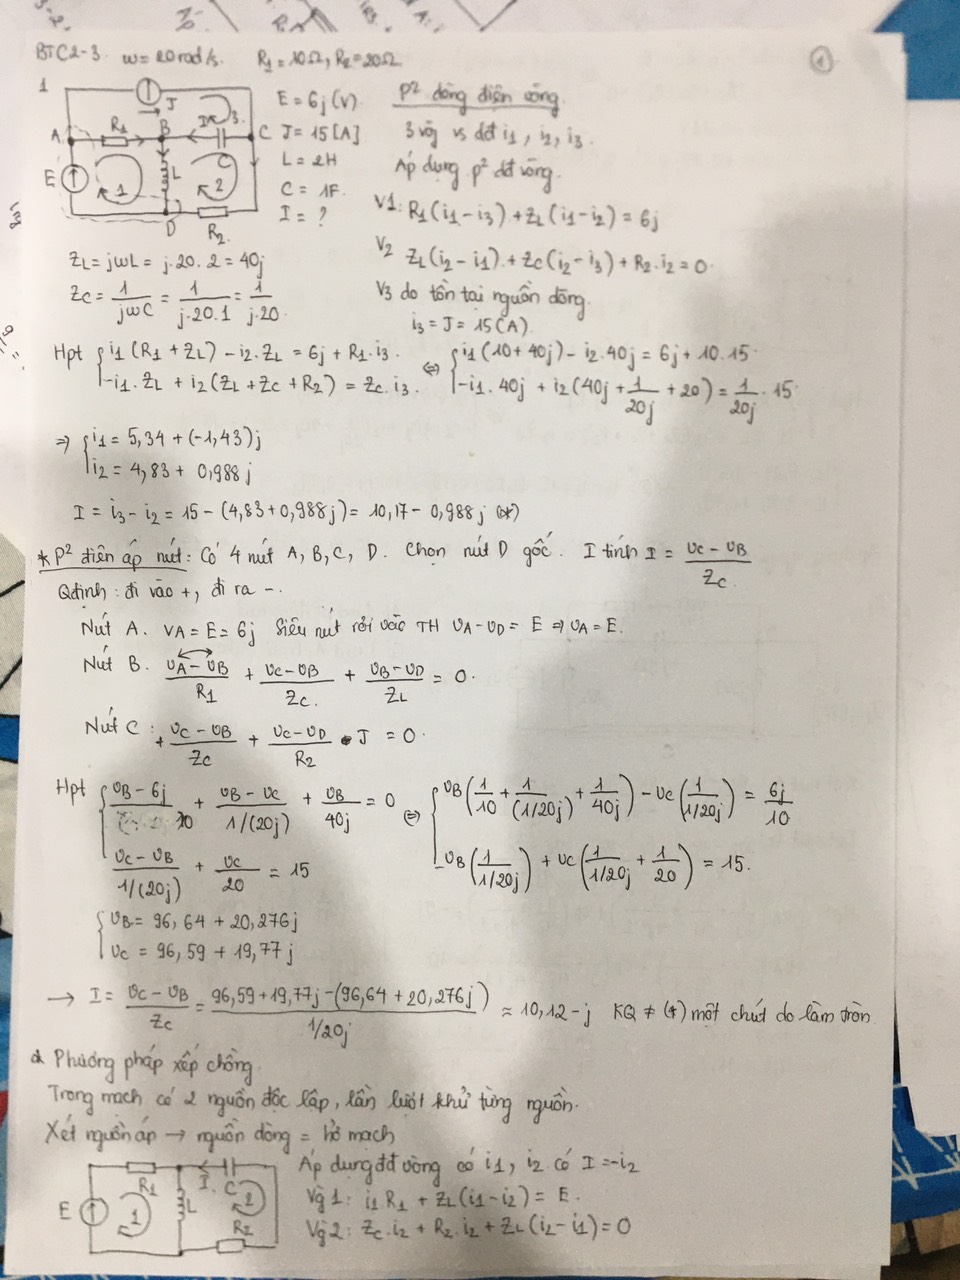 BTC2-3. w = 20 rad/s. R1 = 10Ω, R2 = 20Ω
1
1
J
I 3
A R1 B C
C
E 1 L 2
D R2
E = 6j (V)
J = 15 [A]
L = 2H
C = 1F.
I = ?
P² dòng điện vòng
3 vòg vs dđt i1, i2, i3.
Áp dụng p² dđ vòng.
V1: R1(i1 - i3) + ZL(i1 - i2) = 6j
V2 ZL(i2 - i1) + ZC(i2 - i3) + R2.i2 = 0.
V3 do tồn tại nguồn dòng.
i3 = J = 15 (A).
ZL = jωL = j.20.2 = 40j
ZC = 1/jωC = 1/j.20.1 = 1/j.20
Hpt { i1(R1 + ZL) - i2.ZL = 6j + R1.i3. ⇔ { i1(10 + 40j) - i2.40j = 6j + 10.15
-i1.ZL + i2(ZL + ZC + R2) = ZC.i3. -i1.40j + i2(40j + 1/20j + 20) = 1/20j . 15
⇒ { i1 = 5,34 + (-1,43)j
i2 = 4,83 + 0,988j
I = i3 - i2 = 15 - (4,83 + 0,988j) = 10,17 - 0,988j (*)
* P² điện áp nút: Có 4 nút A, B, C, D. Chọn nút D gốc. I tính I = (UC - UB)/ZC
Qđịnh: đi vào +, đi ra -.
Nút A. VA = E = 6j Siêu nút rơi vào TH UA - UD = E ⇒ UA = E.
Nút B. (UA - UB)/R1 + (UC - UB)/ZC. + (UB - UD)/ZL = 0.
Nút C: + (UC - UB)/ZC + (UC - UD)/R2 - J = 0.
Hpt { (UB - 6j)/10 + (UB - UC)/(1/(20j)) + UB/40j = 0 ⇔ { UB(1/10 + 1/(1/20j) + 1/40j) - UC(1/(1/20j)) = 6j/10
(UC - UB)/(1/(20j)) + UC/20 = 15 -UB(1/(1/20j)) + UC(1/(1/20j) + 1/20) = 15.
{ UB = 96,64 + 20,276j
UC = 96,59 + 19,77j
→ I = (UC - UB)/ZC = (96,59 + 19,77j - (96,64 + 20,276j))/(1/20j) ≈ 10,12 - j KQ ≠ (*) một chút do làm tròn
* Phương pháp xếp chồng.
Trong mạch có 2 nguồn độc lập, lần lượt khử từng nguồn.
Xét nguồn áp → nguồn dòng = hở mạch
R1 I C
E 1 L 2
R2
Áp dụng dđ vòng có i1, i2 có I = -i2
Vg 1: i1R1 + ZL(i1 - i2) = E.
Vg 2: ZC.i2 + R2.i2 + ZL(i2 - i1) = 0